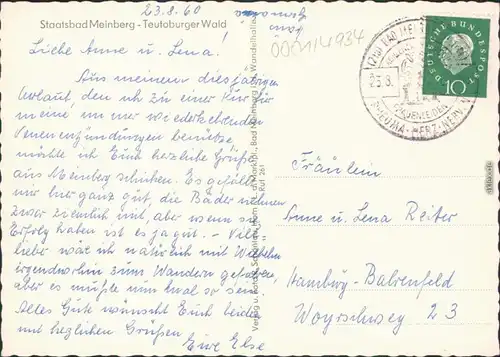 23.8.60
Staatsbad Meinberg - Teutoburger Wald
Liebe Anne u. Lena!
Aus meinem diesjährigen
Urlaub, den ich zu einer Kur für
meine immer wiederkehrenden
Venenentzündungen benütze,
möchte ich Euch herzliche Grüße
aus Meinberg schicken. Es gefällt
mir hier ganz gut, die Bäder nehmen
zwar ziemlich mit, aber wenn sie
Erfolg haben ist es ja gut. - Viel
lieber wär ich natürlich mit Wilhelm
irgendwohin zum Wandern gefahren,
aber es mußte nun mal so sein.
Alles Gute wünscht Euch beiden
mit herzlichen Grüßen
Eure Else
000114934
DEUTSCHE BUNDESPOST
10
23.8.
RHEUMA-HERZ-NERVEN
Fräulein
Anne u. Lena Reiter
Hamburg-Bahrenfeld
Woyrschweg 23